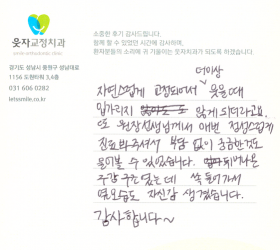 소중한 후기 감사드립니다.
함께 할 수 있었던 시간에 감사하며,
환자분들의 소리에 귀 기울이는 웃자교정치과가 되도록 하겠습니다.
웃자교정치과
경기도 성남시 중원구 성남대로
1156 도원타워 3,4층
031 606 0282
letssmile.co.kr
더이상
자연스럽게 교정되어서 웃을때
입가리지 않게 되더라고요.
또 원장선생님께서 매번 정성스럽게
진료 봐주셔서 부담 없이 궁금한것도
물어볼 수 있었습니다. 튀어나온
주걱 구는 였는데 쏙 들어가서
옆모습도 자신감 생겼습니다.
감사합니다~